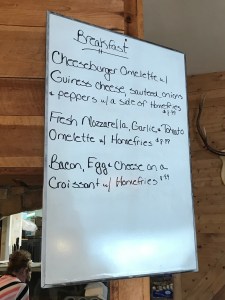 Breakfast
Cheeseburger Omelette w/
Guiness cheese, sauteed onion
+ peppers w/ a side of Homefries
Fresh Mozzarella, Garlic + Tomato
Omelette w/ Homefries $8.99
Bacon, Egg + Cheese on a
Croissant w/ Homefries